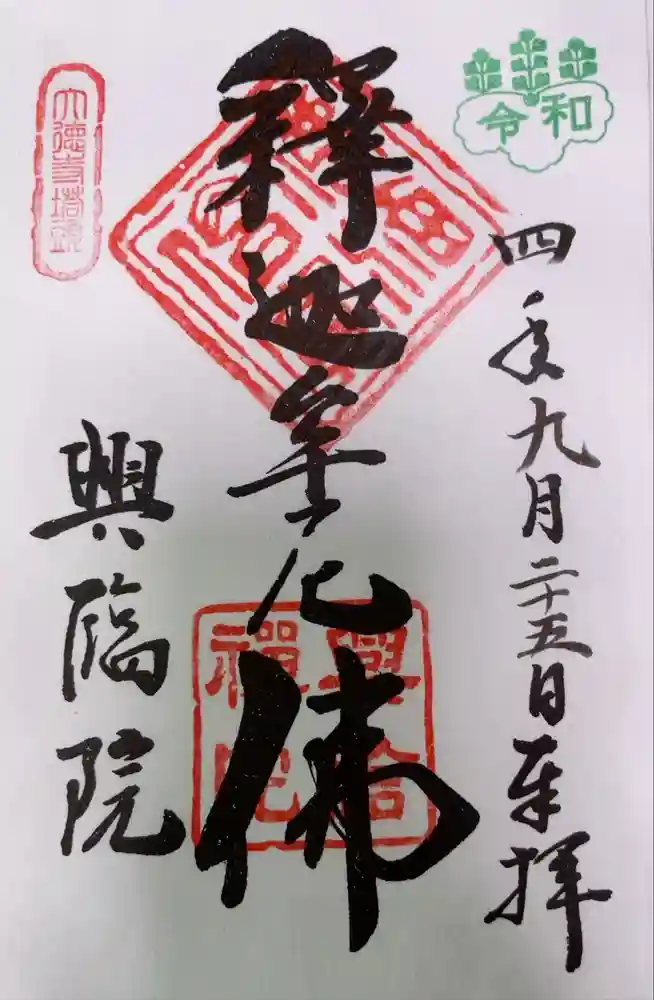 令和
四年九月二十五日奉拝
釋迦牟尼佛
興臨禪院
大徳寺塔頭
興臨院